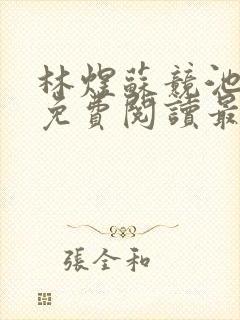 林煜蘇競池
免費閱讀最
張全和